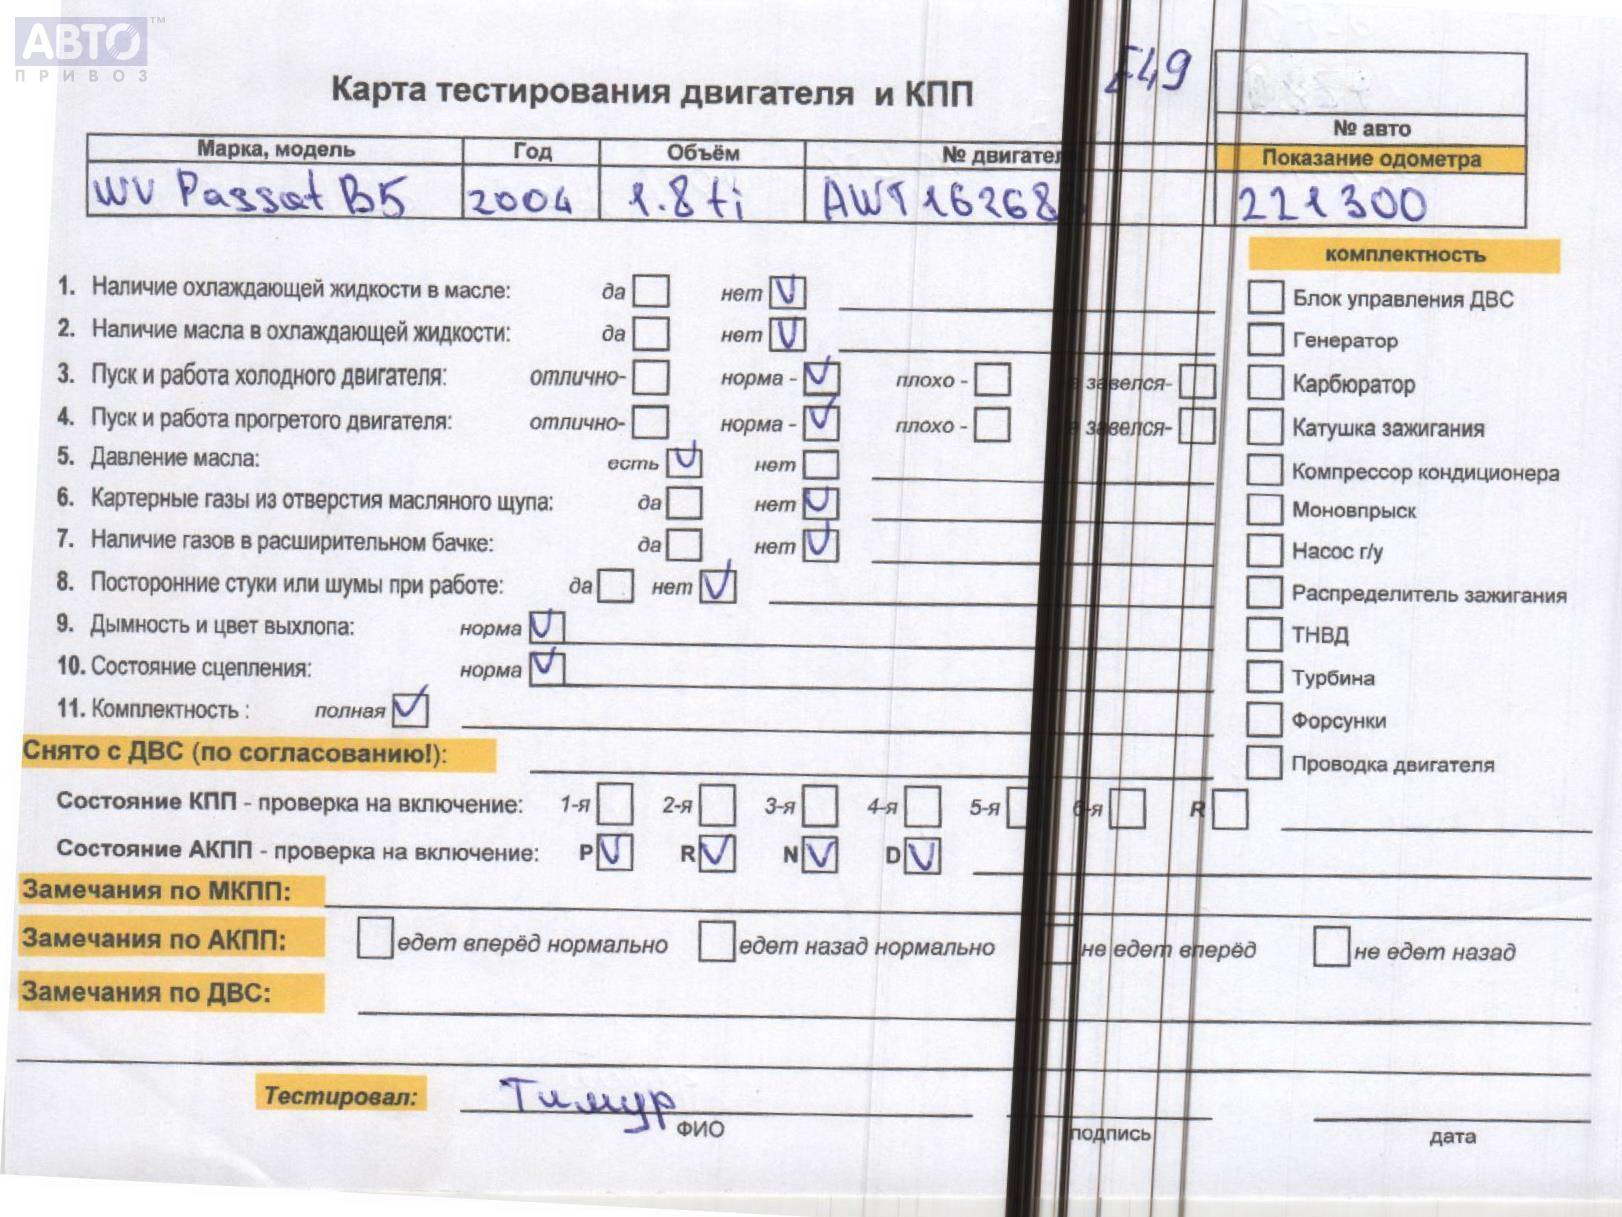 АВТО™
ПРИВОЗ
Е49
Карта тестирования двигателя и КПП
№ авто
Марка, модель Год Объём № двигател Показание одометра
WV Passat B5 2004 1.8 ti AWT 16268 221300
комплектность
1. Наличие охлаждающей жидкости в масле: да нет
Блок управления ДВС
2. Наличие масла в охлаждающей жидкости: да нет
Генератор
3. Пуск и работа холодного двигателя: отлично- норма - плохо - завелся-
Карбюратор
4. Пуск и работа прогретого двигателя: отлично- норма - плохо - завелся-
Катушка зажигания
5. Давление масла: есть нет
Компрессор кондиционера
6. Картерные газы из отверстия масляного щупа: да нет
Моновпрыск
7. Наличие газов в расширительном бачке: да нет
Насос г/у
8. Посторонние стуки или шумы при работе: да нет
Распределитель зажигания
9. Дымность и цвет выхлопа: норма
ТНВД
10. Состояние сцепления: норма
Турбина
11. Комплектность : полная
Форсунки
Снято с ДВС (по согласованию!):
Проводка двигателя
Состояние КПП - проверка на включение: 1-я 2-я 3-я 4-я 5-я 6-я R
Состояние АКПП - проверка на включение: P R N D
Замечания по МКПП:
Замечания по АКПП: едет вперёд нормально едет назад нормально не едет вперёд не едет назад
Замечания по ДВС:
Тестировал: Тимур
ФИО подпись дата